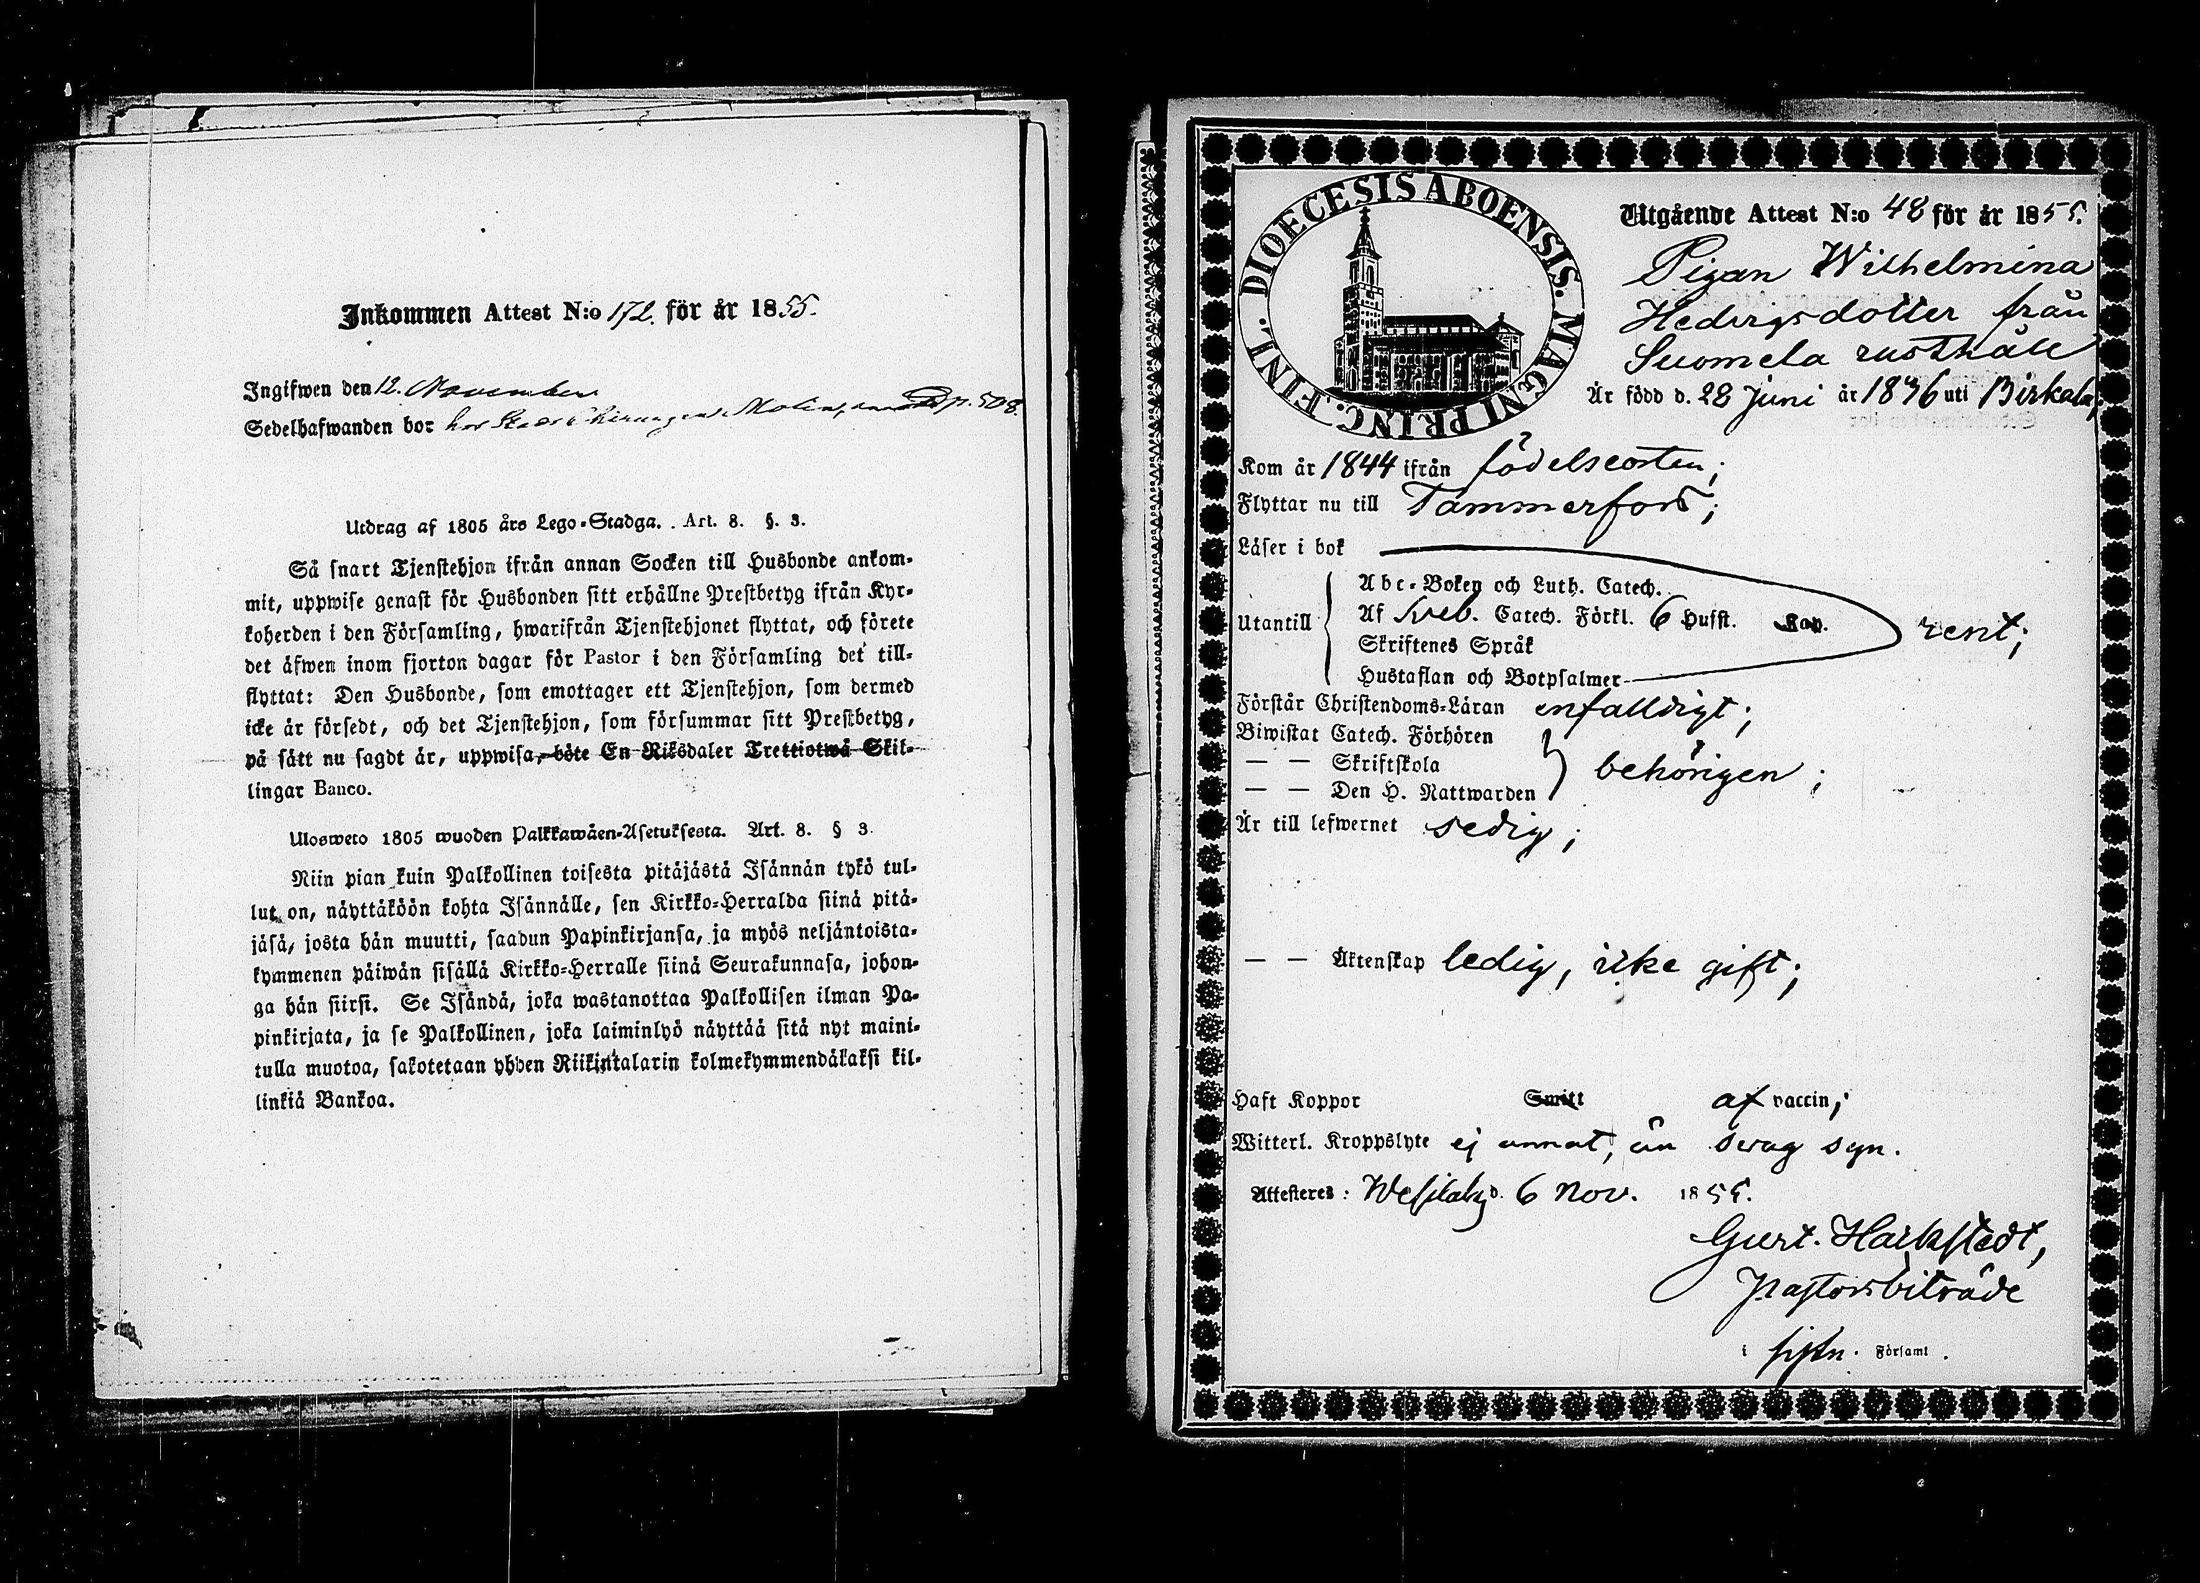 Inkommen Attest N:o 172. för år 1855.
Ingifwen den 12. November
Sedelhafwanden bor hos Stads Chirurgen Molin, p. 508.
Utdrag af 1805 års Lego-Stadga. Art. 8. §. 3.
Så snart Tjenstehjon ifrån annan Socken till Husbonde ankom-
mit, uppwise genast för Husbonden sitt erhållne Prestbetyg ifrån Kyr-
koherden i den Församling, hwarifrån Tjenstehjonet flyttat, och förete
det äfwen inom fjorton dagar för Pastor i den Församling det till-
flyttat: Den Husbonde, som emottager ett Tjenstehjon, som dermed
icke är försedt, och det Tjenstehjon, som försummar sitt Prestbetyg,
på sätt nu sagdt är, uppwisa, böte En Riksdaler Trettiotwå Skil-
lingar Banco.
Ulosweto 1805 wuoden Palkkawäen-Asetuksesta. Art. 8. § 3.
Niin pian kuin Palkollinen toisesta pitäjästä Isännän tykö tul-
lut on, näyttäköön kohta Isännälle, sen Kirkko-Herralda siinä pitä-
jäsä, josta hän muutti, saadun Papinkirjansa, ja myös neljäntoista-
kymmenen päiwän sisällä Kirkko-Herralle siinä Seurakunnasa, johon-
ga hän siirsi. Se Isändä, joka wastanottaa Palkollisen ilman Pa-
pinkirjata, ja se Palkollinen, joka laiminlyö näyttää sitä nyt maini-
tulla muotoa, sakotetaan yhden Riikintalarin kolmekymmendäkaksi kil-
linkiä Bankoa.
DIOECESIS ABOENSIS. MAGNI PRINC. FINL.
Utgående Attest N:o 48 för år 1855.
Pigan Wilhelmina
Hedvigsdotter från
Suomela rusthåll
Är född d. 28 Juni år 1836 uti Birkala;
Kom år 1844 ifrån födelseorten;
Flyttar nu till Tammerfors;
Läser i bok
Abc-Boken och Luth. Catech.
Utantill Af Sveb. Catech. Förkl. 6 Husst. Kap. rent;
Skriftenes Språk
Hustaflan och Botpsalmer
Förstår Christendoms-Läran enfalldigt;
Biwistat Catech. Förhören
— — Skriftskola behörigen;
— — Den H. Nattwarden
Är till lefwernet sedig;
— — Äktenskap ledig, icke gift;
Haft Koppor Smitt af vaccin;
Witterl. Kroppslyte ej annat, än svag syn.
Attesteres: Wesilaks d. 6 Nov. 1855.
Gust. Hackstedt,
Pastorsbiträde
i Församl.